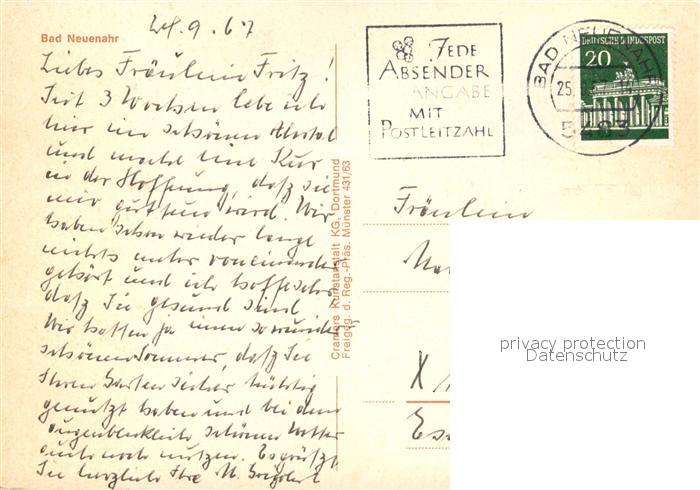 24.9.67
Bad Neuenahr
Liebes Fräulein Fritz!
Seit 3 Wochen lebe ich
hier im schönen Ahrtal
und mache eine Kur
in der Hoffnung, daß sie
mir guttun wird. Wir
haben schon wieder lange
nichts mehr voneinander
gehört und ich hoffe sehr,
daß Sie gesund sind.
Wir hatten ja einen so wunder
schönen Sommer, daß Sie
Ihren Garten sicher tüchtig
genutzt haben und bei dem
augenblicklich schönen Wetter
auch noch nutzen. Es grüßt
Sie herzlich Ihre M.
Cramers Kunstanstalt KG, Dortmund
Freigeg. d. Reg.-Präs. Münster 431/63
JEDE
ABSENDER
ANGABE
MIT
POSTLEITZAHL
BAD NEUENAHR 1
25.
5483
DEUTSCHE BUNDESPOST
20
Fräulein
X
privacy protection
Datenschutz